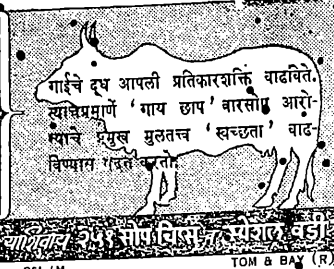 गाईचे दूध आपली प्रतिकारशक्ति वाढविते.
त्याचेप्रमाणें 'गाय छाप' बारसोप आरो-
ग्याचे प्रमुख मुलतत्त्व 'स्वच्छता' वाढ-
विण्यास मदत करतो.
याशिवाय २५१ सोप चिप्स, स्पेशल वडी
TOM & BAY (R)